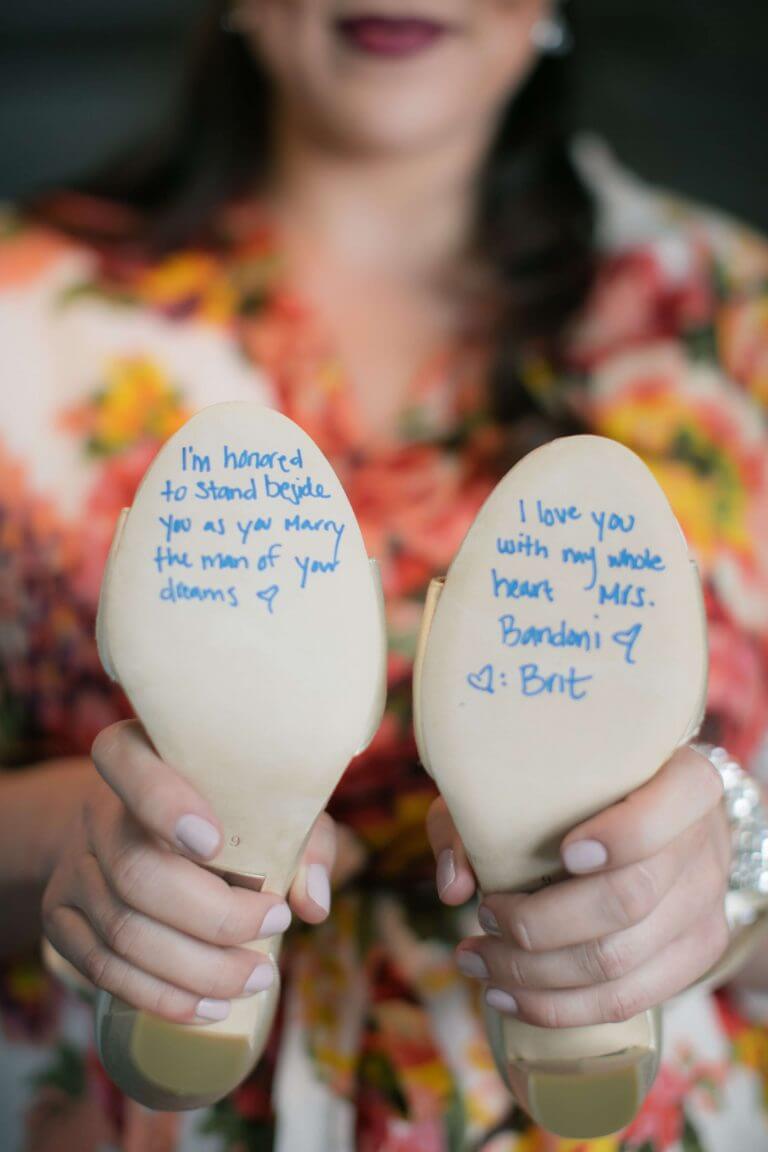 I'm honored
to stand beside
you as you marry
the man of your
dreams ♡
9
I love you
with my whole
heart Mrs.
Bandoni ♡
♡: Brit
9